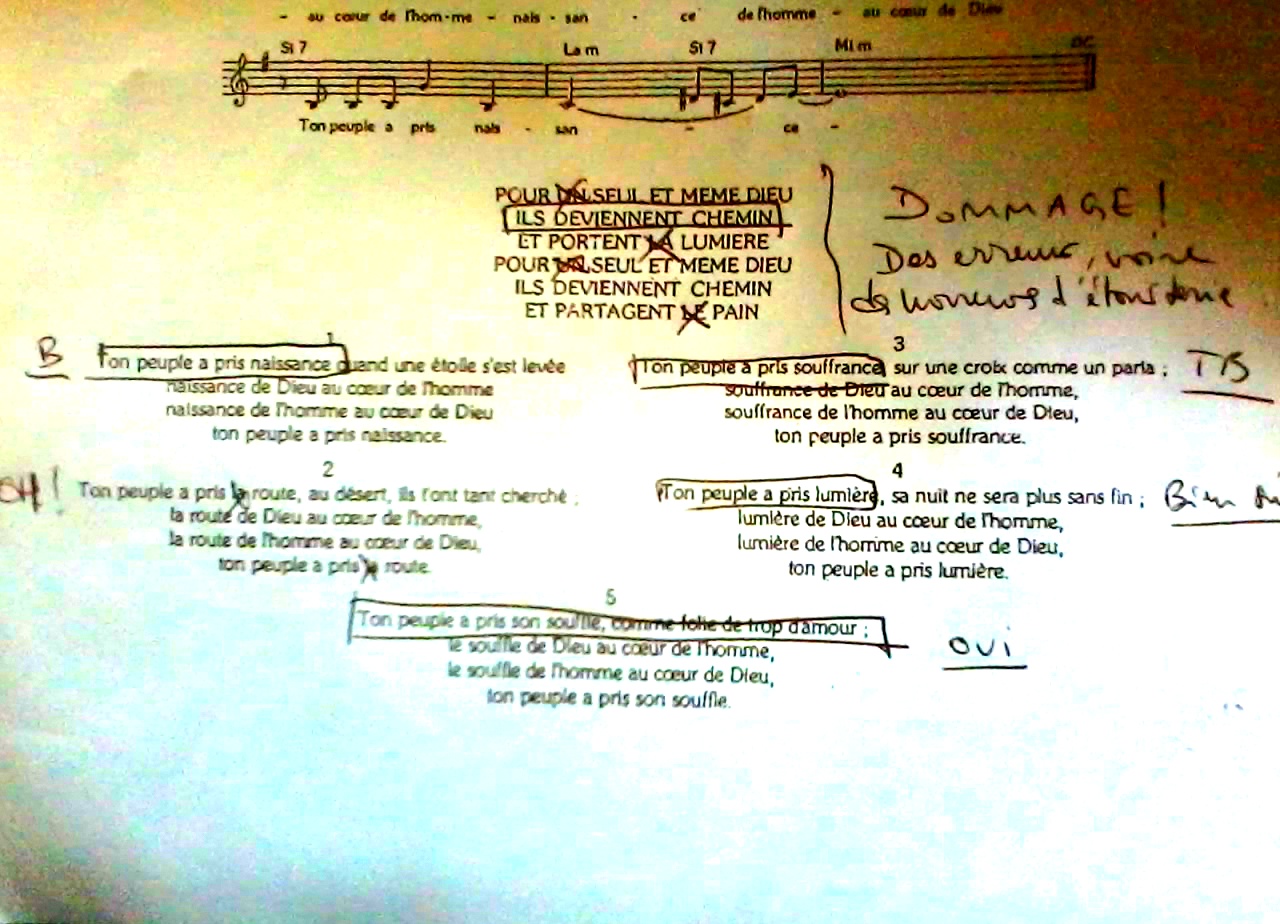 - au cœur de l'hom-me - nais - san - ce de l'homme - au cœur de Dieu
Si 7 La m Si 7 Mi m DC
Ton peuple a pris nais - san - ce -
POUR UN SEUL ET MEME DIEU
ILS DEVIENNENT CHEMIN
ET PORTENT LA LUMIERE
POUR UN SEUL ET MEME DIEU
ILS DEVIENNENT CHEMIN
ET PARTAGENT LE PAIN
DOMMAGE !
Des erreurs, voire
des horreurs d'étourderie
1
B Ton peuple a pris naissance quand une étoile s'est levée
naissance de Dieu au cœur de l'homme
naissance de l'homme au cœur de Dieu
ton peuple a pris naissance.
2
OH ! Ton peuple a pris la route, au désert, ils t'ont tant cherché ;
la route de Dieu au cœur de l'homme,
la route de l'homme au cœur de Dieu,
ton peuple a pris la route.
3
Ton peuple a pris souffrance sur une croix comme un paria ; TB
souffrance de Dieu au cœur de l'homme,
souffrance de l'homme au cœur de Dieu,
ton peuple a pris souffrance.
4
Ton peuple a pris lumière, sa nuit ne sera plus sans fin ; Bien
lumière de Dieu au cœur de l'homme,
lumière de l'homme au cœur de Dieu,
ton peuple a pris lumière.
5
Ton peuple a pris son souffle, comme folie de trop d'amour ; OUI
le souffle de Dieu au cœur de l'homme,
le souffle de l'homme au cœur de Dieu,
ton peuple a pris son souffle.